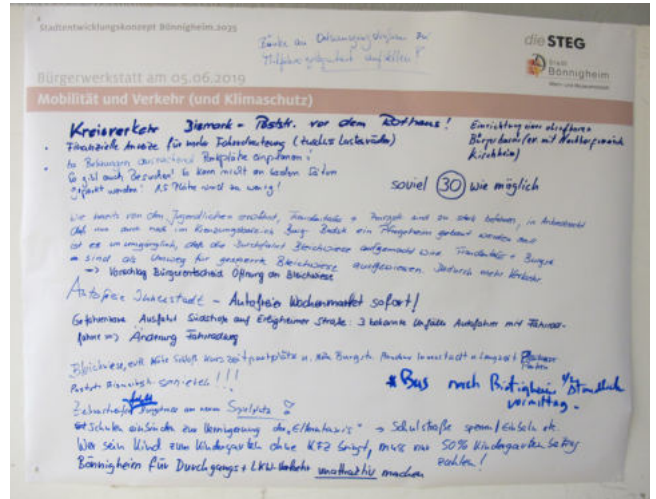 Stadtentwicklungskonzept Bönnigheim 2035
Bänke an Ortsausgangstafeln zur
Mitfahrgelegenheit aufstellen!
die STEG
Stadt
Bönnigheim
Bürgerwerkstatt am 05.06.2019
Mobilität und Verkehr (und Klimaschutz)
Kreisverkehr Bismark - Poststr. vor dem Rathaus!
Einrichtung eines abrufbaren
Bürgerbusses mit Nachbargemeinde
Kirchheim)
Finanzielle Anreize für mehr Fahrradnutzung (Lastenräder)
In Planungen ausreichend Parkplätze einplanen!
Es gibt auch Besucher! Es kann nicht an beiden Seiten
geparkt werden! 1,5 Plätze sind zu wenig!
soviel 30 wie möglich
Wie bereits von den Jugendlichen erwähnt, + sind so stark befahren, in Anbetracht
daß nun auch noch im Kreuzungsbereich Burg ein Pflegeheim gebaut werden soll
ist es unumgänglich, daß die Durchfahrt Bleichwiese aufgemacht wird. + Burgstr
sind als Umweg für gesperrte Bleichwiese ausgewiesen. Dadurch mehr Verkehr
=> Vorschlag Bürgerentscheid Öffnung der Bleichwiese
Autofreie Innenstadt - Autofreier Wochenmarkt sofort!
Gefahrenzone Ausfahrt Südstraße auf Erligheimer Straße: 3 bekannte Unfälle Autofahrer mit Fahrrad-
fahrer => Änderung
Bleichwiese, evtl. Nähe Schloß Kurzzeitparkplätze u. Nähe Burgstr. Innenstadt
Poststr. Bismarckstr. sanieren!!!
* Bus nach Bietigheim 1/2 stündlich
vormittag.
am neuen Spielplatz
Schulen einbinden zur Verringerung des "Elterntaxis" -> Schulstraße sperren/Einbahn etc.
Wer sein Kind zum Kindergarten ohne KFZ bringt, muss nur 50% Kindergartenbeitrag
zahlen!
Bönnigheim für Durchgangs + LKW-Verkehr unattraktiv machen